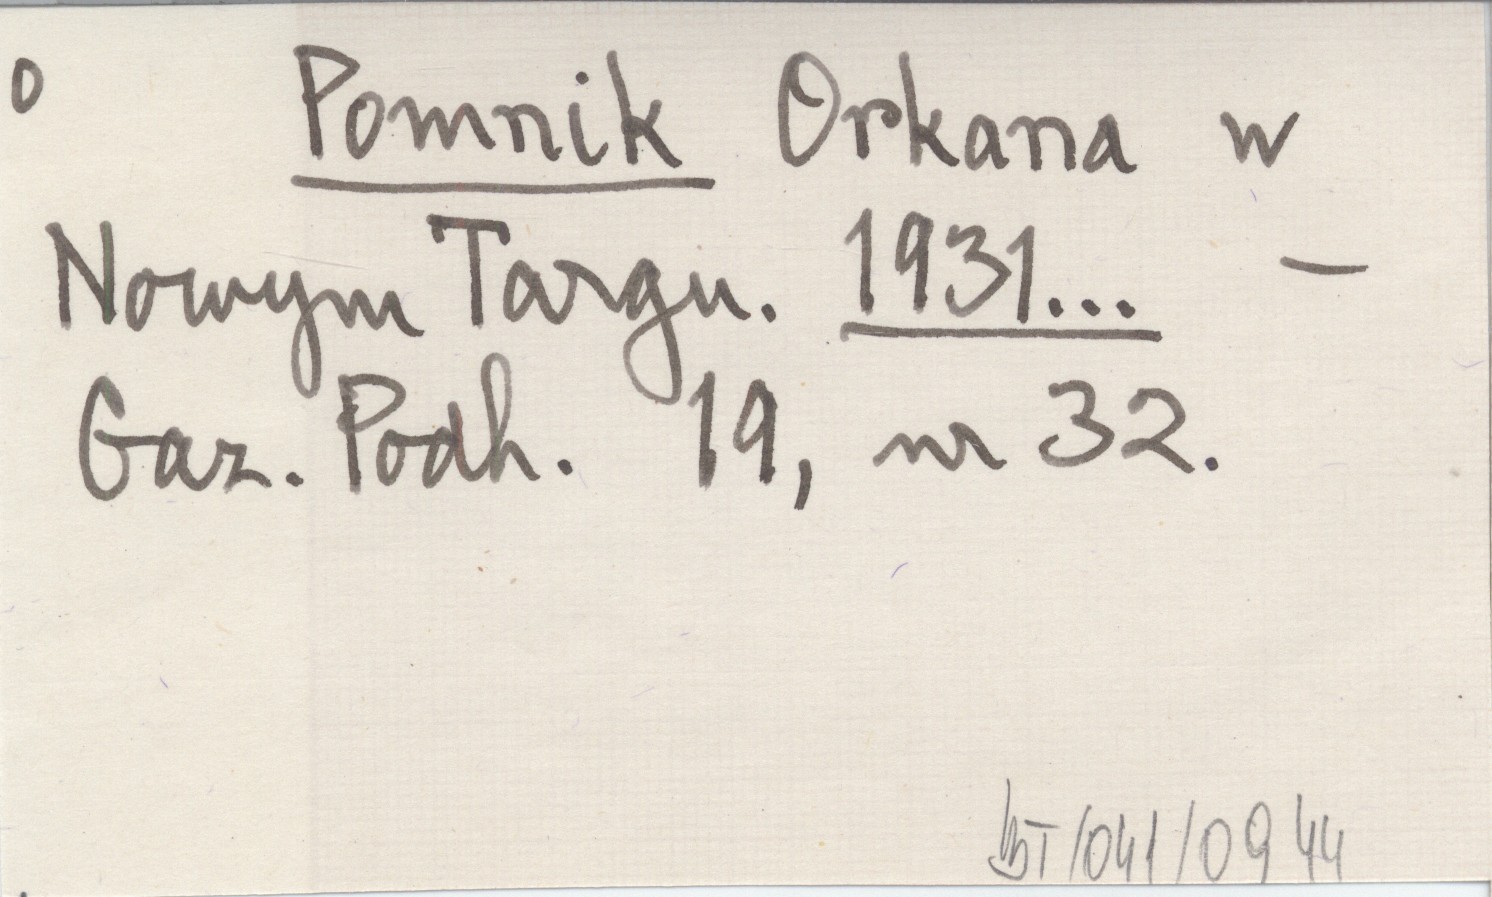 o Pomnik Orkana w
Nowym Targu. 1931... –
Gaz. Podh. 19, nr 32.
/041/0944